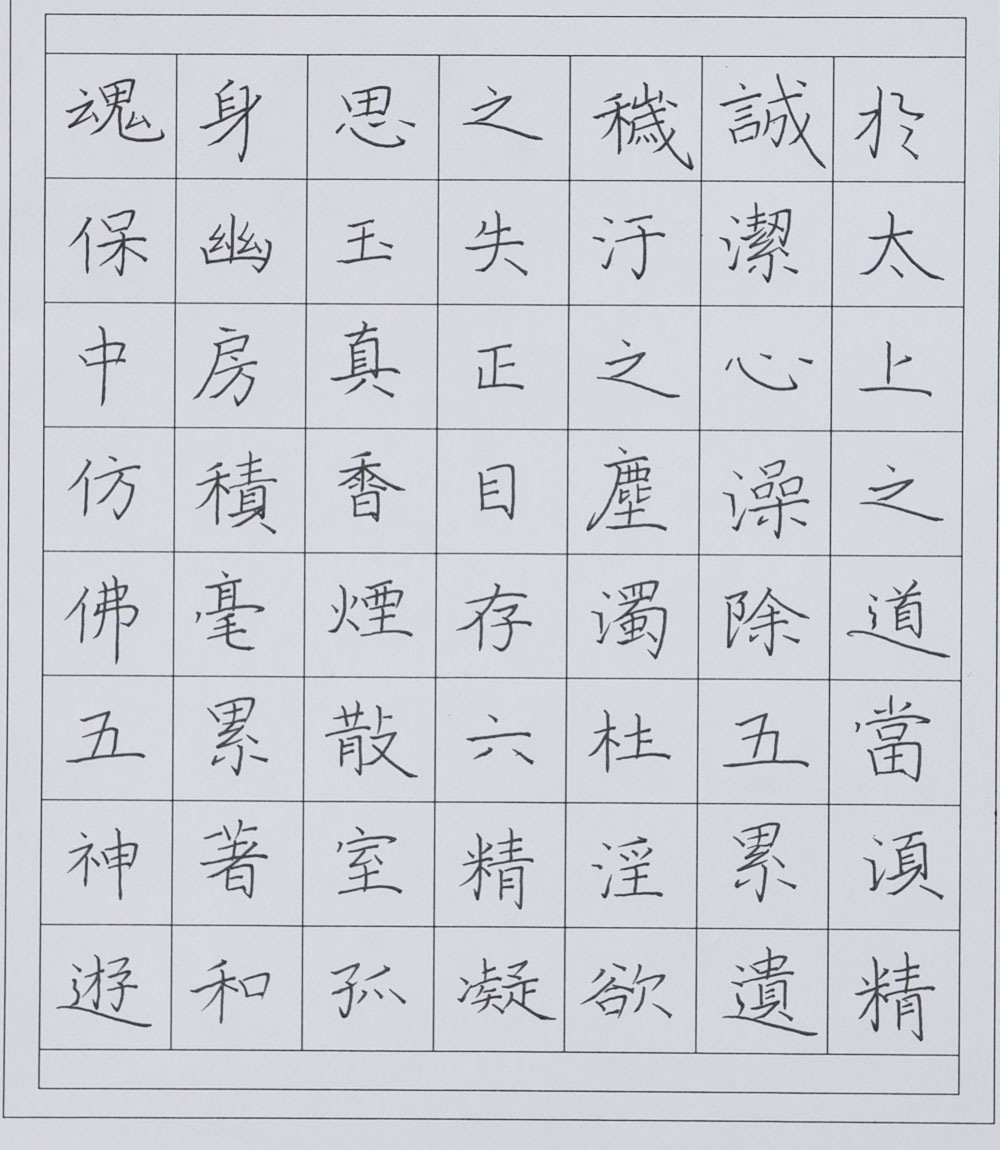 於太上之道當湏精
誠潔心澡除五累遺
穢汙之塵濁杜淫欲
之失正目存六精凝
思玉真香煙散室孤
身幽房積毫累著和
魂保中仿佛五神遊